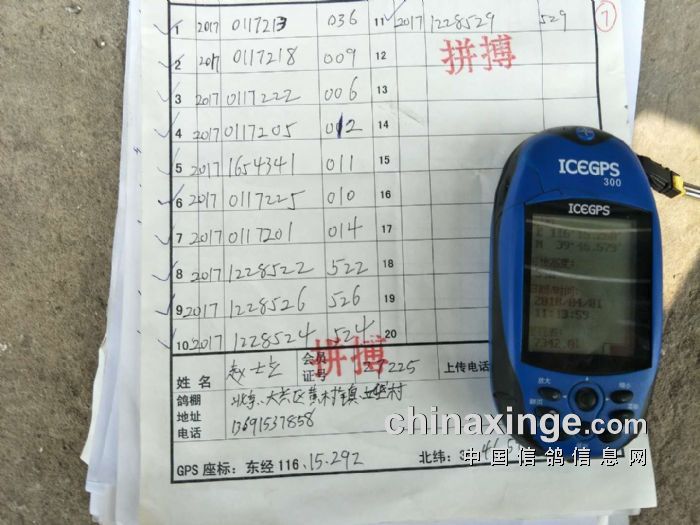 1 2017 0117213 036 11 2017 1228529 529 7
2 2017 0117218 009 12
拼搏
3 2017 0117222 006 13
4 2017 0117205 012 14
5 2017 1654341 011 15
6 2017 0117225 010 16
7 2017 0117201 014 17
8 2017 1228522 522 18
9 2017 1228526 526 19
10 2017 1228524 524 20
拼搏
姓名 会员证号 225 上传电话
鸽棚地址电话 北京、大兴区黄村镇 村
13691537858
GPS 座标：东经 116.15.292 北纬：
ICEGPS
300
ICEGPS
E 116°
N 39°46.579'
2018/04/01
11:13:59
2342.01
放大
缩小
翻页
chinaxinge.com
中国信鸽信息网